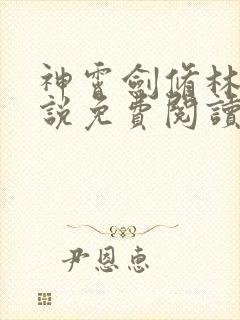 神霄劍脩林
說免費閱讀
尹恩惠